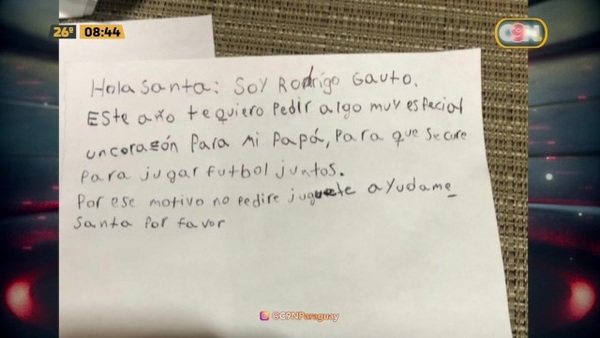 26° 08:44
C9N
Hola Santa: Soy Rodrigo Gauto.
Este año te quiero pedir algo muy especial
un corazón para mi papá, para que se cure
para jugar futbol juntos.
Por ese motivo no pedire juguete ayudame
Santa por favor
@C9NParaguay